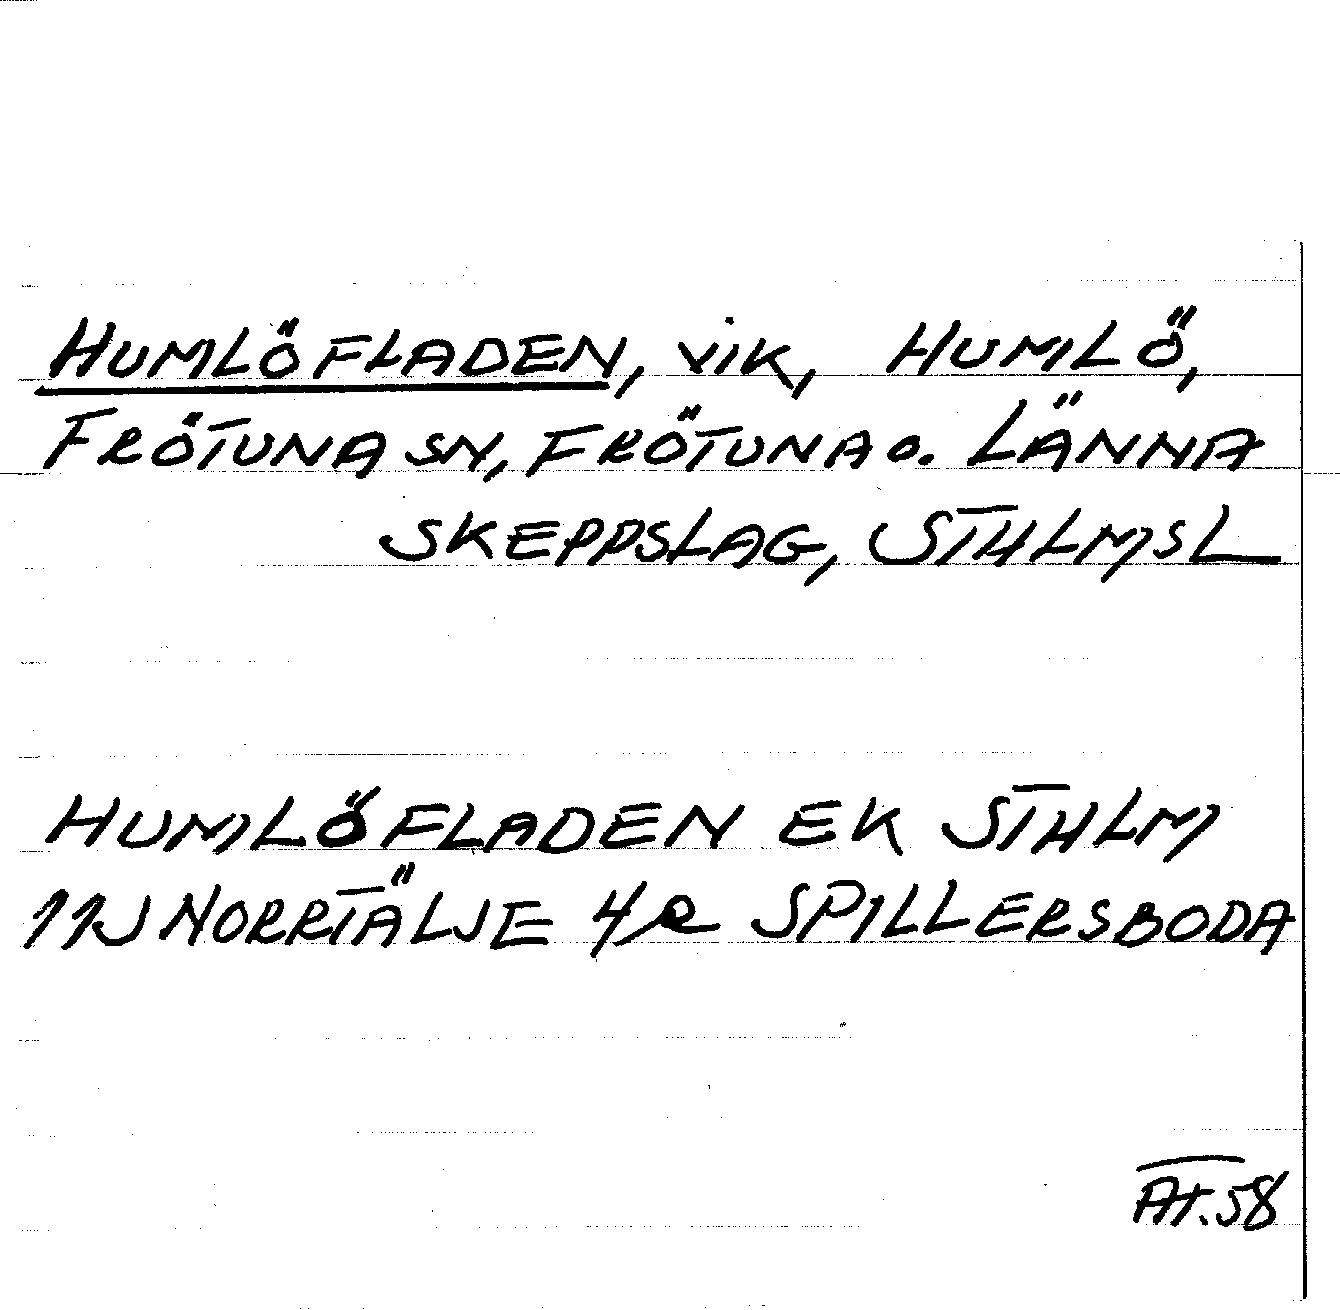 HUMLÖFLADEN, VIK, HUMLÖ,
FRÖTUNA SN, FRÖTUNA O. LÄNNA
SKEPPSLAG, STHLMSL
HUMLÖFLADEN EK STHLM
11J NORRTÄLJE 4R SPILLERSBODA
AT.58